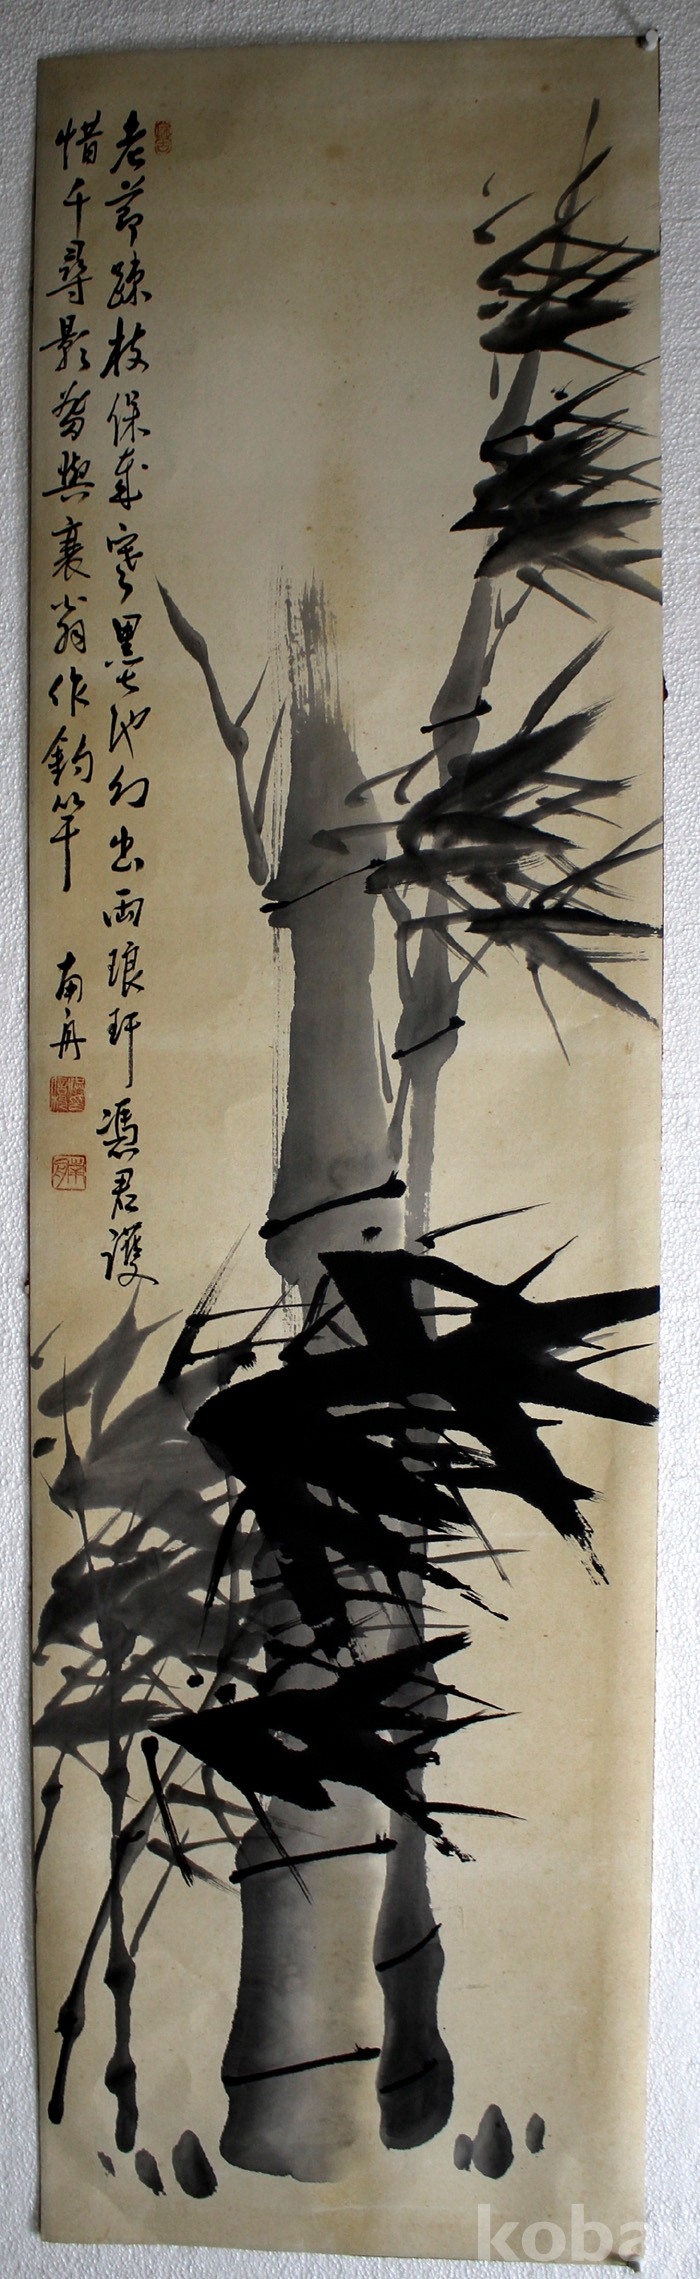 老節疎枝保歲寒墨池幻出兩琅玕憑君護
惜千尋影留與蓑翁作釣竿
南舟
koba